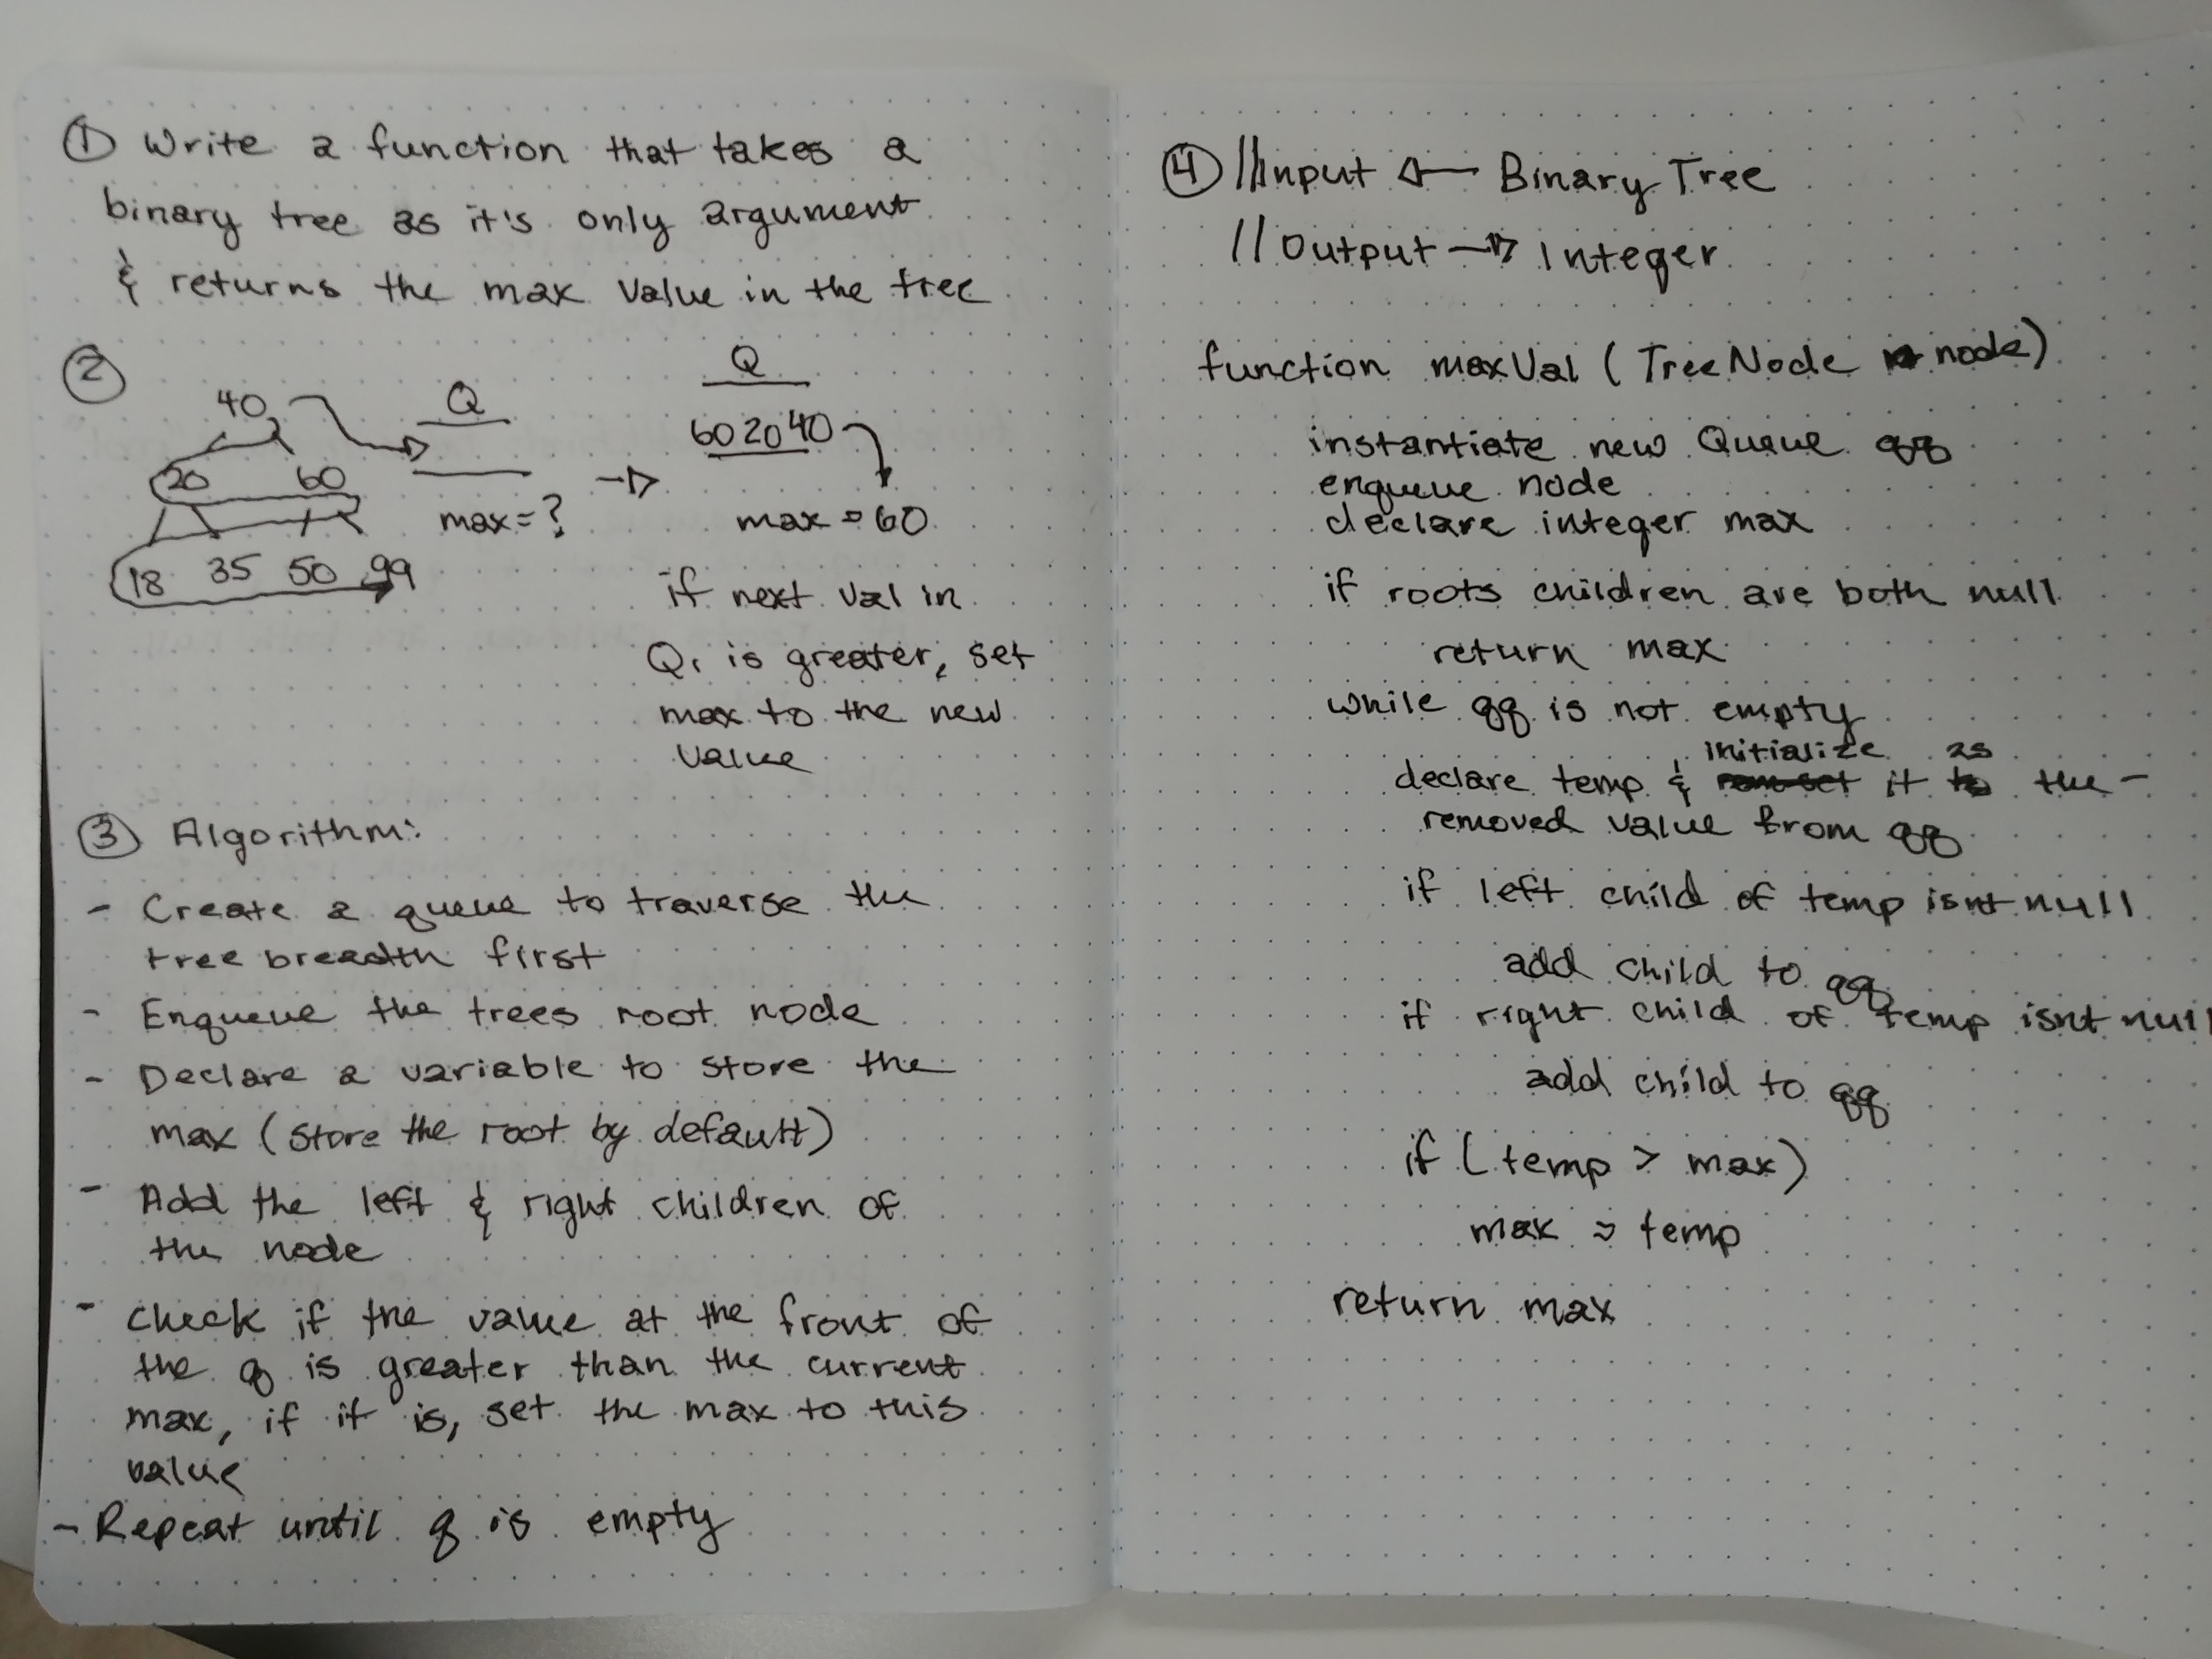 ① Write a function that takes a
binary tree as it's only argument
& returns the max value in the tree
②
40
20 60
18 35 50 99
Q
max = ?
Q
60 20 40
max = 60
if next val in
Q, is greater, set
max to the new
value
③ Algorithm:
- Create a queue to traverse the
tree breadth first
- Enqueue the trees root node
- Declare a variable to store the
max (store the root by default)
- Add the left & right children of
the node
- Check if the value at the front of
the q is greater than the current
max, if it is, set the max to this
value
- Repeat until q is empty
④ //Input ← Binary Tree
// Output → Integer
function maxVal (TreeNode node)
instantiate new Queue qq
enqueue node
declare integer max
if roots children are both null
return max
while qq is not empty
declare temp & initialize it as the -
removed value from qq
if left child of temp isnt null
add child to qq
if right child of temp isnt null
add child to qq
if (temp > max)
max = temp
return max